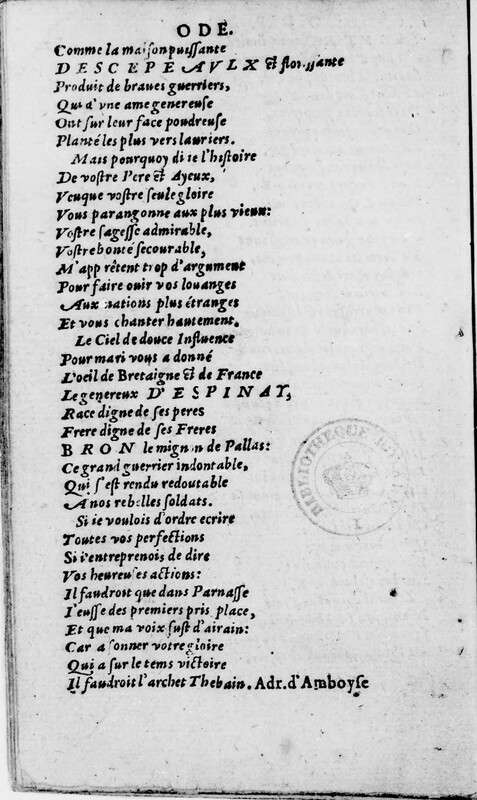 ODE.
Comme la maiſon puiſſante
DESCEPEAVLX & floriſſante
Produit de braues guerriers,
Qui d'vne ame genereuſe
Ont ſur leur face poudreuſe
Planté les plus vers lauriers.
Mais pourquoy di ie l'hiſtoire
De voſtre Pere & Ayeux,
Veuque voſtre ſeule gloire
Vous parangonne aux plus vieux:
Voſtre ſageſſe admirable,
Voſtre bonté ſecourable,
M'apprêtent trop d'argument
Pour faire ouir vos louanges
Aux nations plus étranges
Et vous chanter hautement.
Le Ciel de douce Influence
Pour mari vous a donné
L'oeil de Bretaigne & de France
Le genereux D'ESPINAY,
Race digne de ſes peres
Frere digne de ſes Freres
BRON le mignon de Pallas:
Ce grand guerrier indontable,
Qui s'eſt rendu redoutable
A nos rebelles ſoldats.
Si ie voulois d'ordre ecrire
Toutes vos perfections
Si i'entreprenois de dire
Vos heureuſes actions:
Il faudroit que dans Parnaſſe
I'euſſe des premiers pris place,
Et que ma voix fuſt d'airain:
Car a ſonner votre gloire
Qui a ſur le tems victoire
Il faudroit l'archet Thebain. Adr. d'Amboyſe
BIBLIOTHEQUE
I